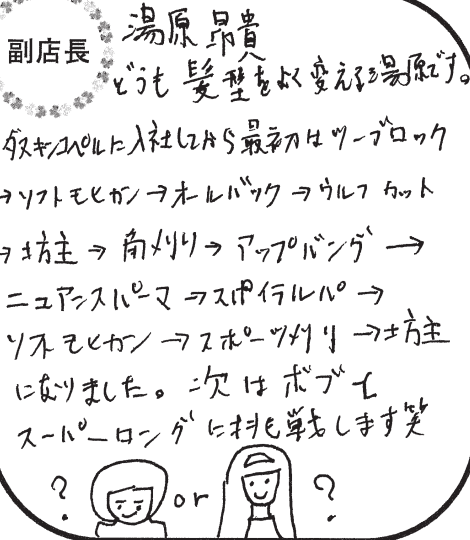 副店長
湯原 昂貴
どうも 髪型をよく変える湯原です。
ダスキンコペルに入社してから最初はツーブロック
→ソフトモヒカン→オールバック→ウルフカット
→坊主→角刈り→アップバング→
ニュアンスパーマ→スパイラルパ→
ソフトモヒカン→スポーツ刈り→坊主
になりました。次はボブと
スーパーロングに挑戦します笑
? or ?